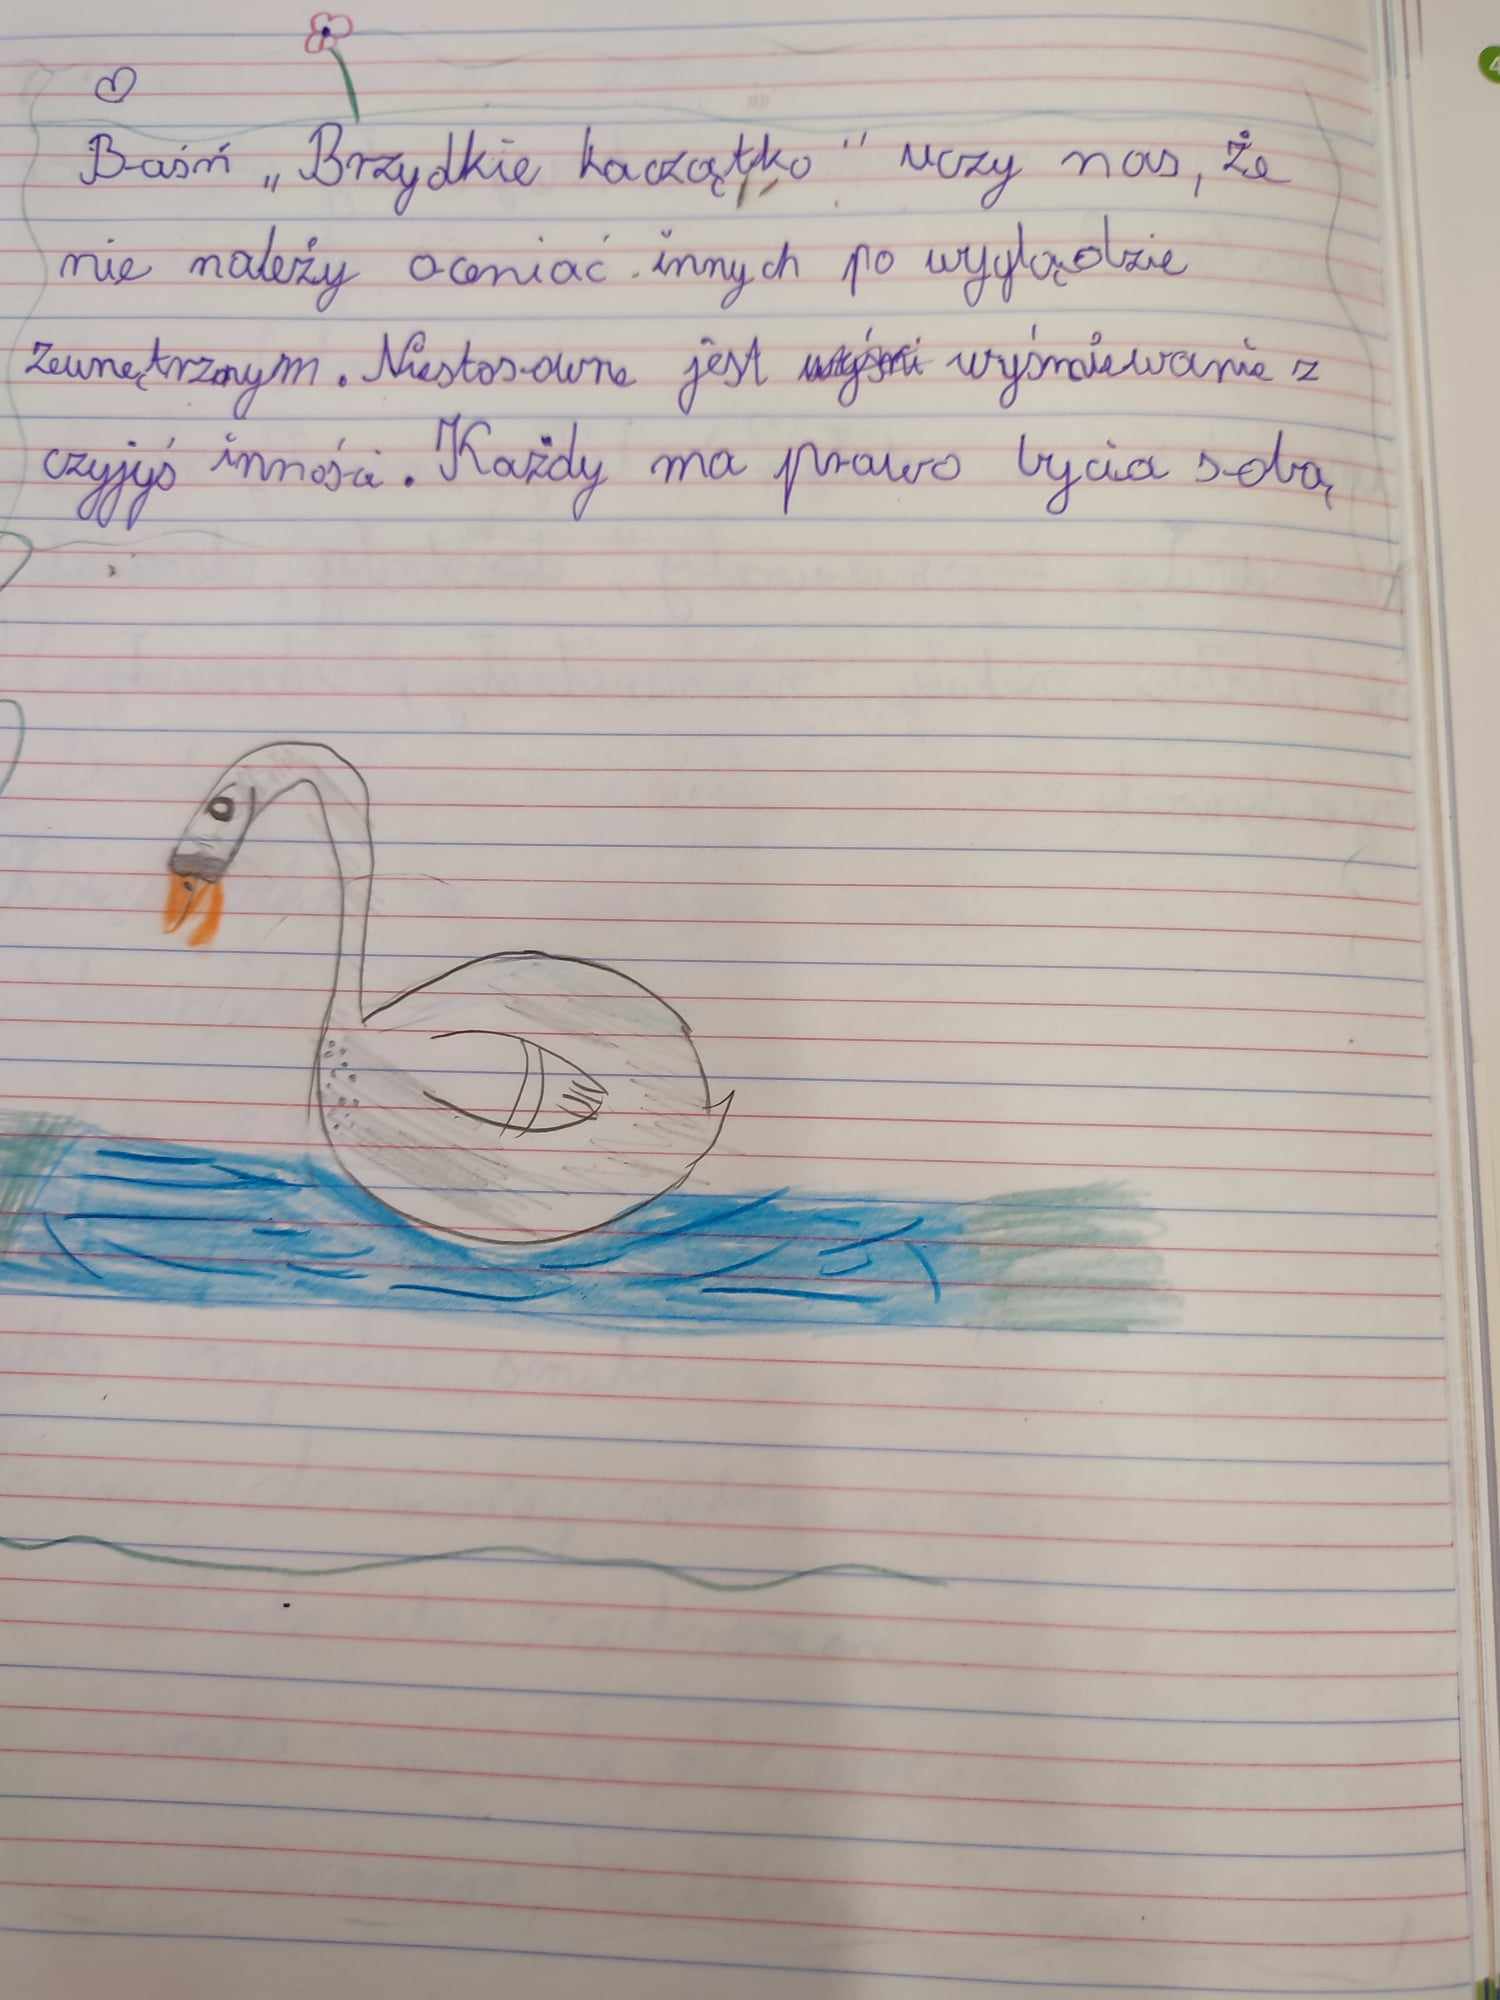 Baśń „Brzydkie kaczątko" uczy nas, że
nie należy oceniać innych po wyglądzie
zewnętrznym. Niestosowne jest wyśmiewanie z
czyjyś inności. Każdy ma prawo bycia sobą